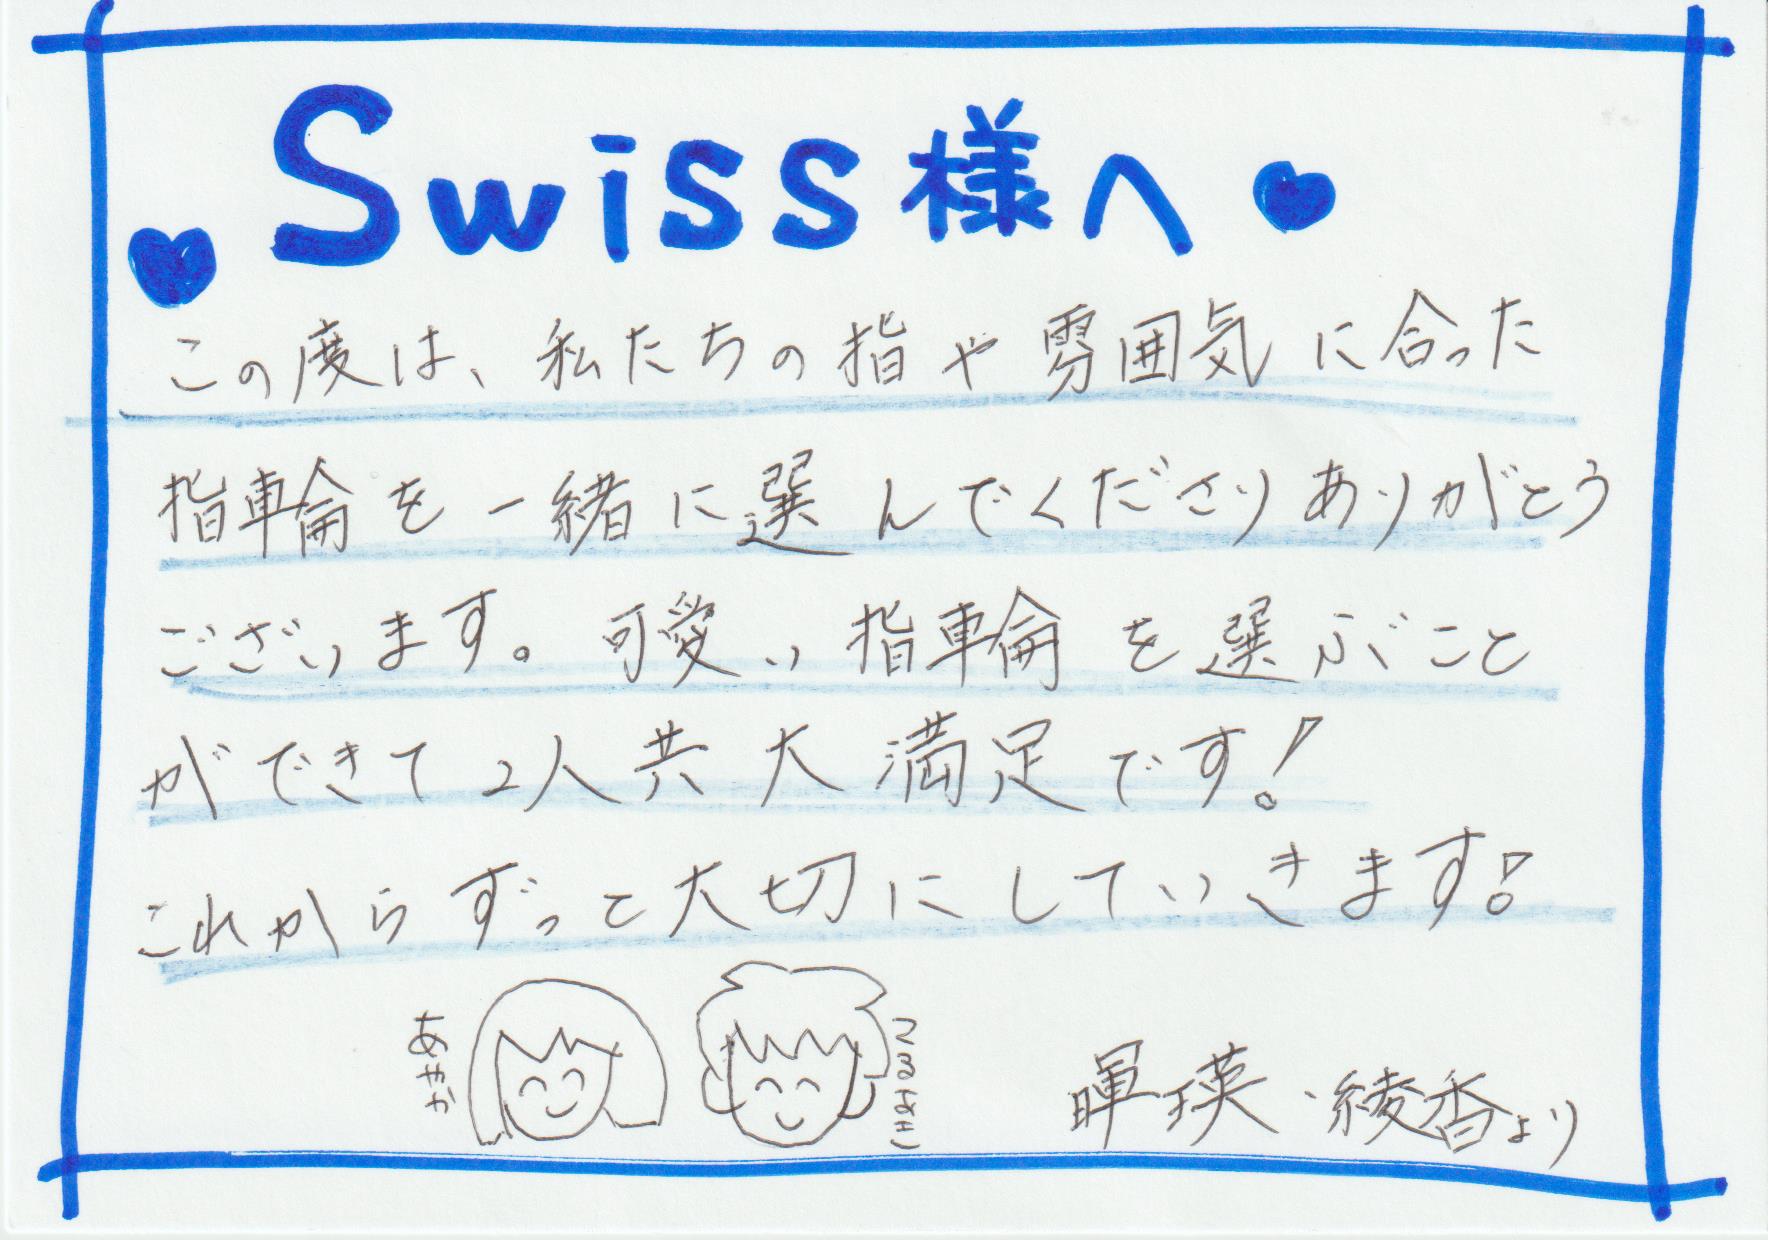 Swiss様へ
この度は、私たちの指や雰囲気に合った
指輪を一緒に選んでくださりありがとう
ございます。可愛い指輪を選ぶこと
ができて2人共大満足です!
これからずっと大切にしていきます!
あやか
暉瑛・綾香より